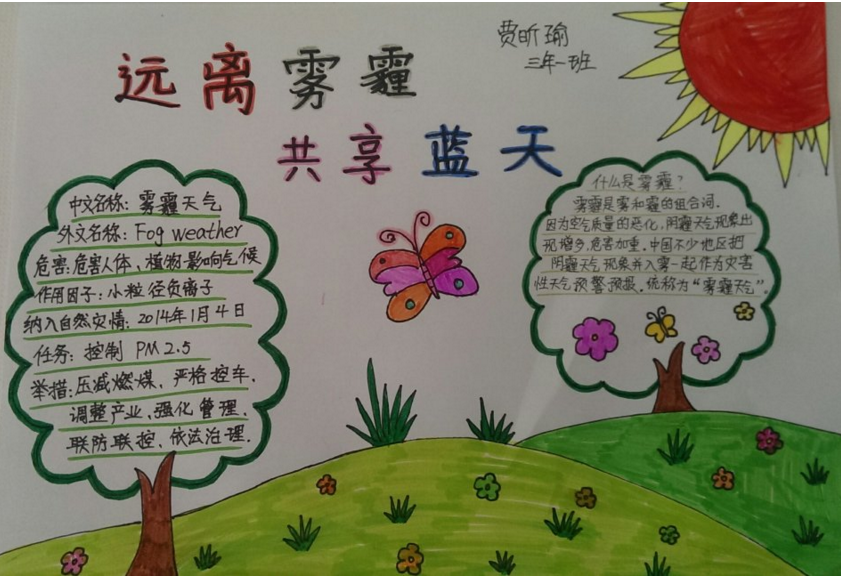 远离雾霾
费昕瑜
三年一班
共享蓝天
中文名称：雾霾天气
外文名称：Fog weather
危害：危害人体、植物、影响气候
作用因子：小粒径负离子
纳入自然灾情：2014年1月4日
任务：控制 PM 2.5
举措：压减燃煤、严格控车、
调整产业、强化管理、
联防联控、依法治理.
什么是雾霾？
雾霾是雾和霾的组合词.
因为空气质量的恶化,阴霾天气现象出
现增多,危害加重.中国不少地区把
阴霾天气现象并入雾一起作为灾害
性天气预警预报.统称为“雾霾天气”.